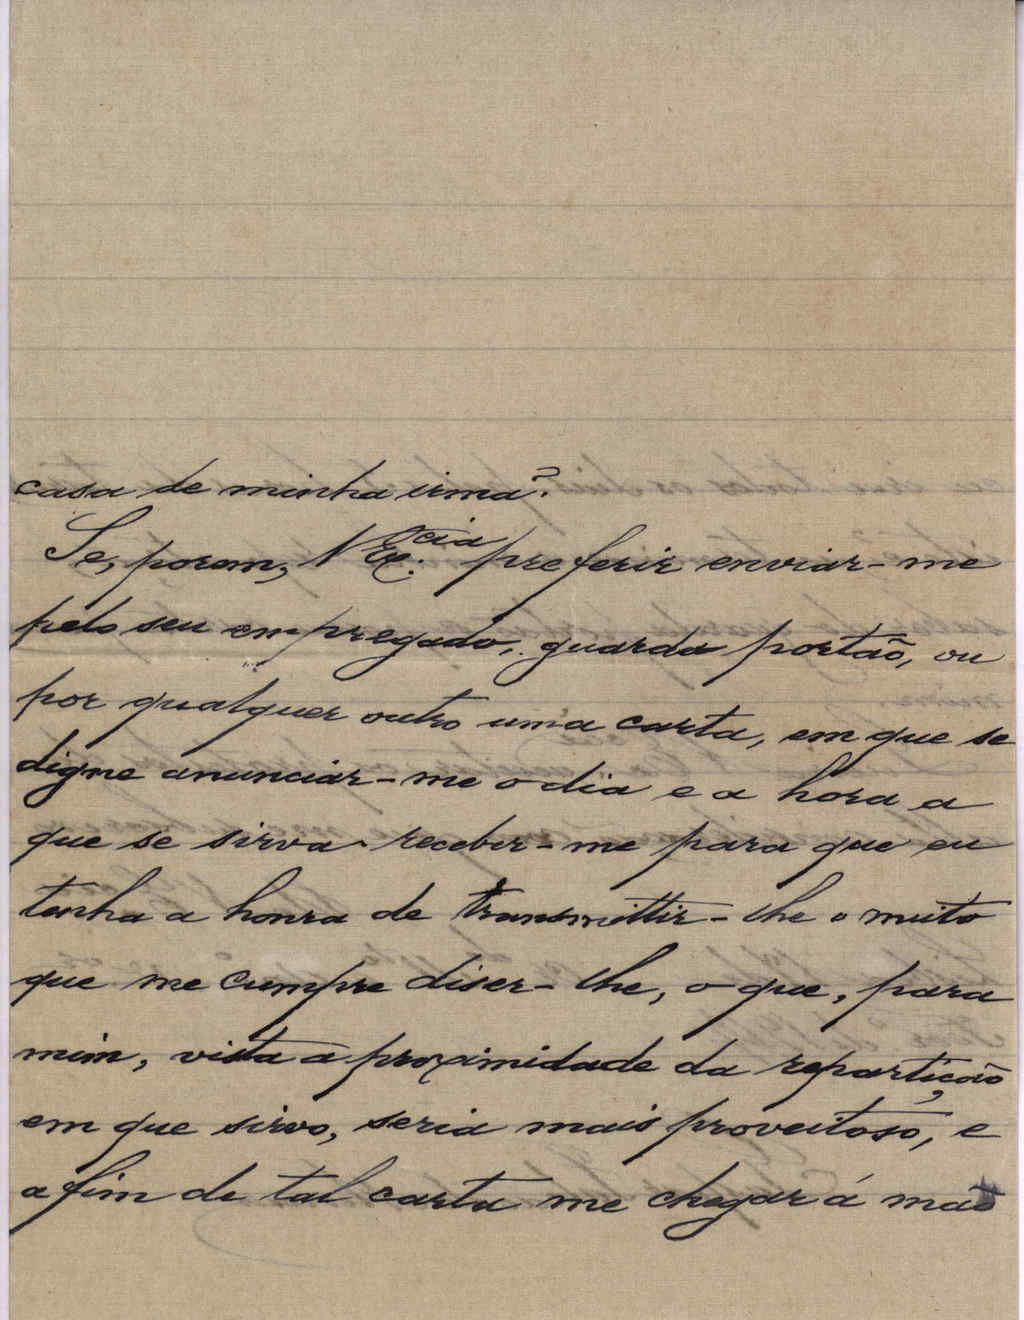 casa de minha irmã?
Se, porem, V Ex.cia preferir enviar-me
pelo seu empregado, guarda portão, ou
por qualquer outro uma carta, em que se
digne anunciar-me o dia e a hora a
que se sirva receber-me para que eu
tenha a honra de transmittir-lhe o muito
que me cumpre diser-lhe, o que, para
mim, vista a proximidade da repartição
em que sirvo, seria mais proveitoso, e
a fim de tal carta me chegar á mão